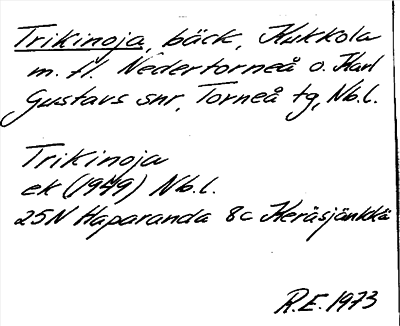 Trikinoja, bäck, Kukkola
m. fl. Nedertorneå o. Karl
Gustavs snr, Torneå tg, Nb.l.
Trikinoja
ek (1949) Nb.l.
25N Haparanda 8c Keräsjänkkä
R.E. 1973